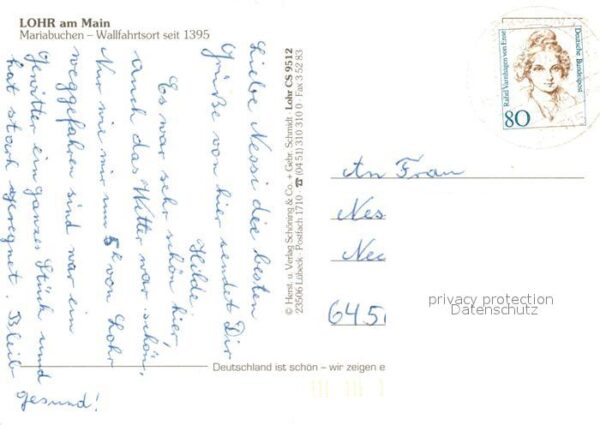 LOHR am Main
Mariabuchen – Wallfahrtsort seit 1395
Liebe Nessi die besten
Grüße von hier sendet Dir
Hilde
Es war sehr schön hier,
auch das Wetter war schön,
Nur wie wir um 5h von Lohr
weggefahren sind war ein
Gewitter ein ganzes Stück und
hat stark geregnet. Bleib
gesund!
© Herst. u. Verlag Schöning & Co. + Gebr. Schmidt Lohr CS 9512
23506 Lübeck · Postfach 1710 ☎ (04 51) 310 310 0 · Fax 3 52 83
Rahel Varnhagen von Ense
Deutsche Bundespost
80
An Frau
Nes
Nec
645
privacy protection
Datenschutz
Deutschland ist schön – wir zeigen e